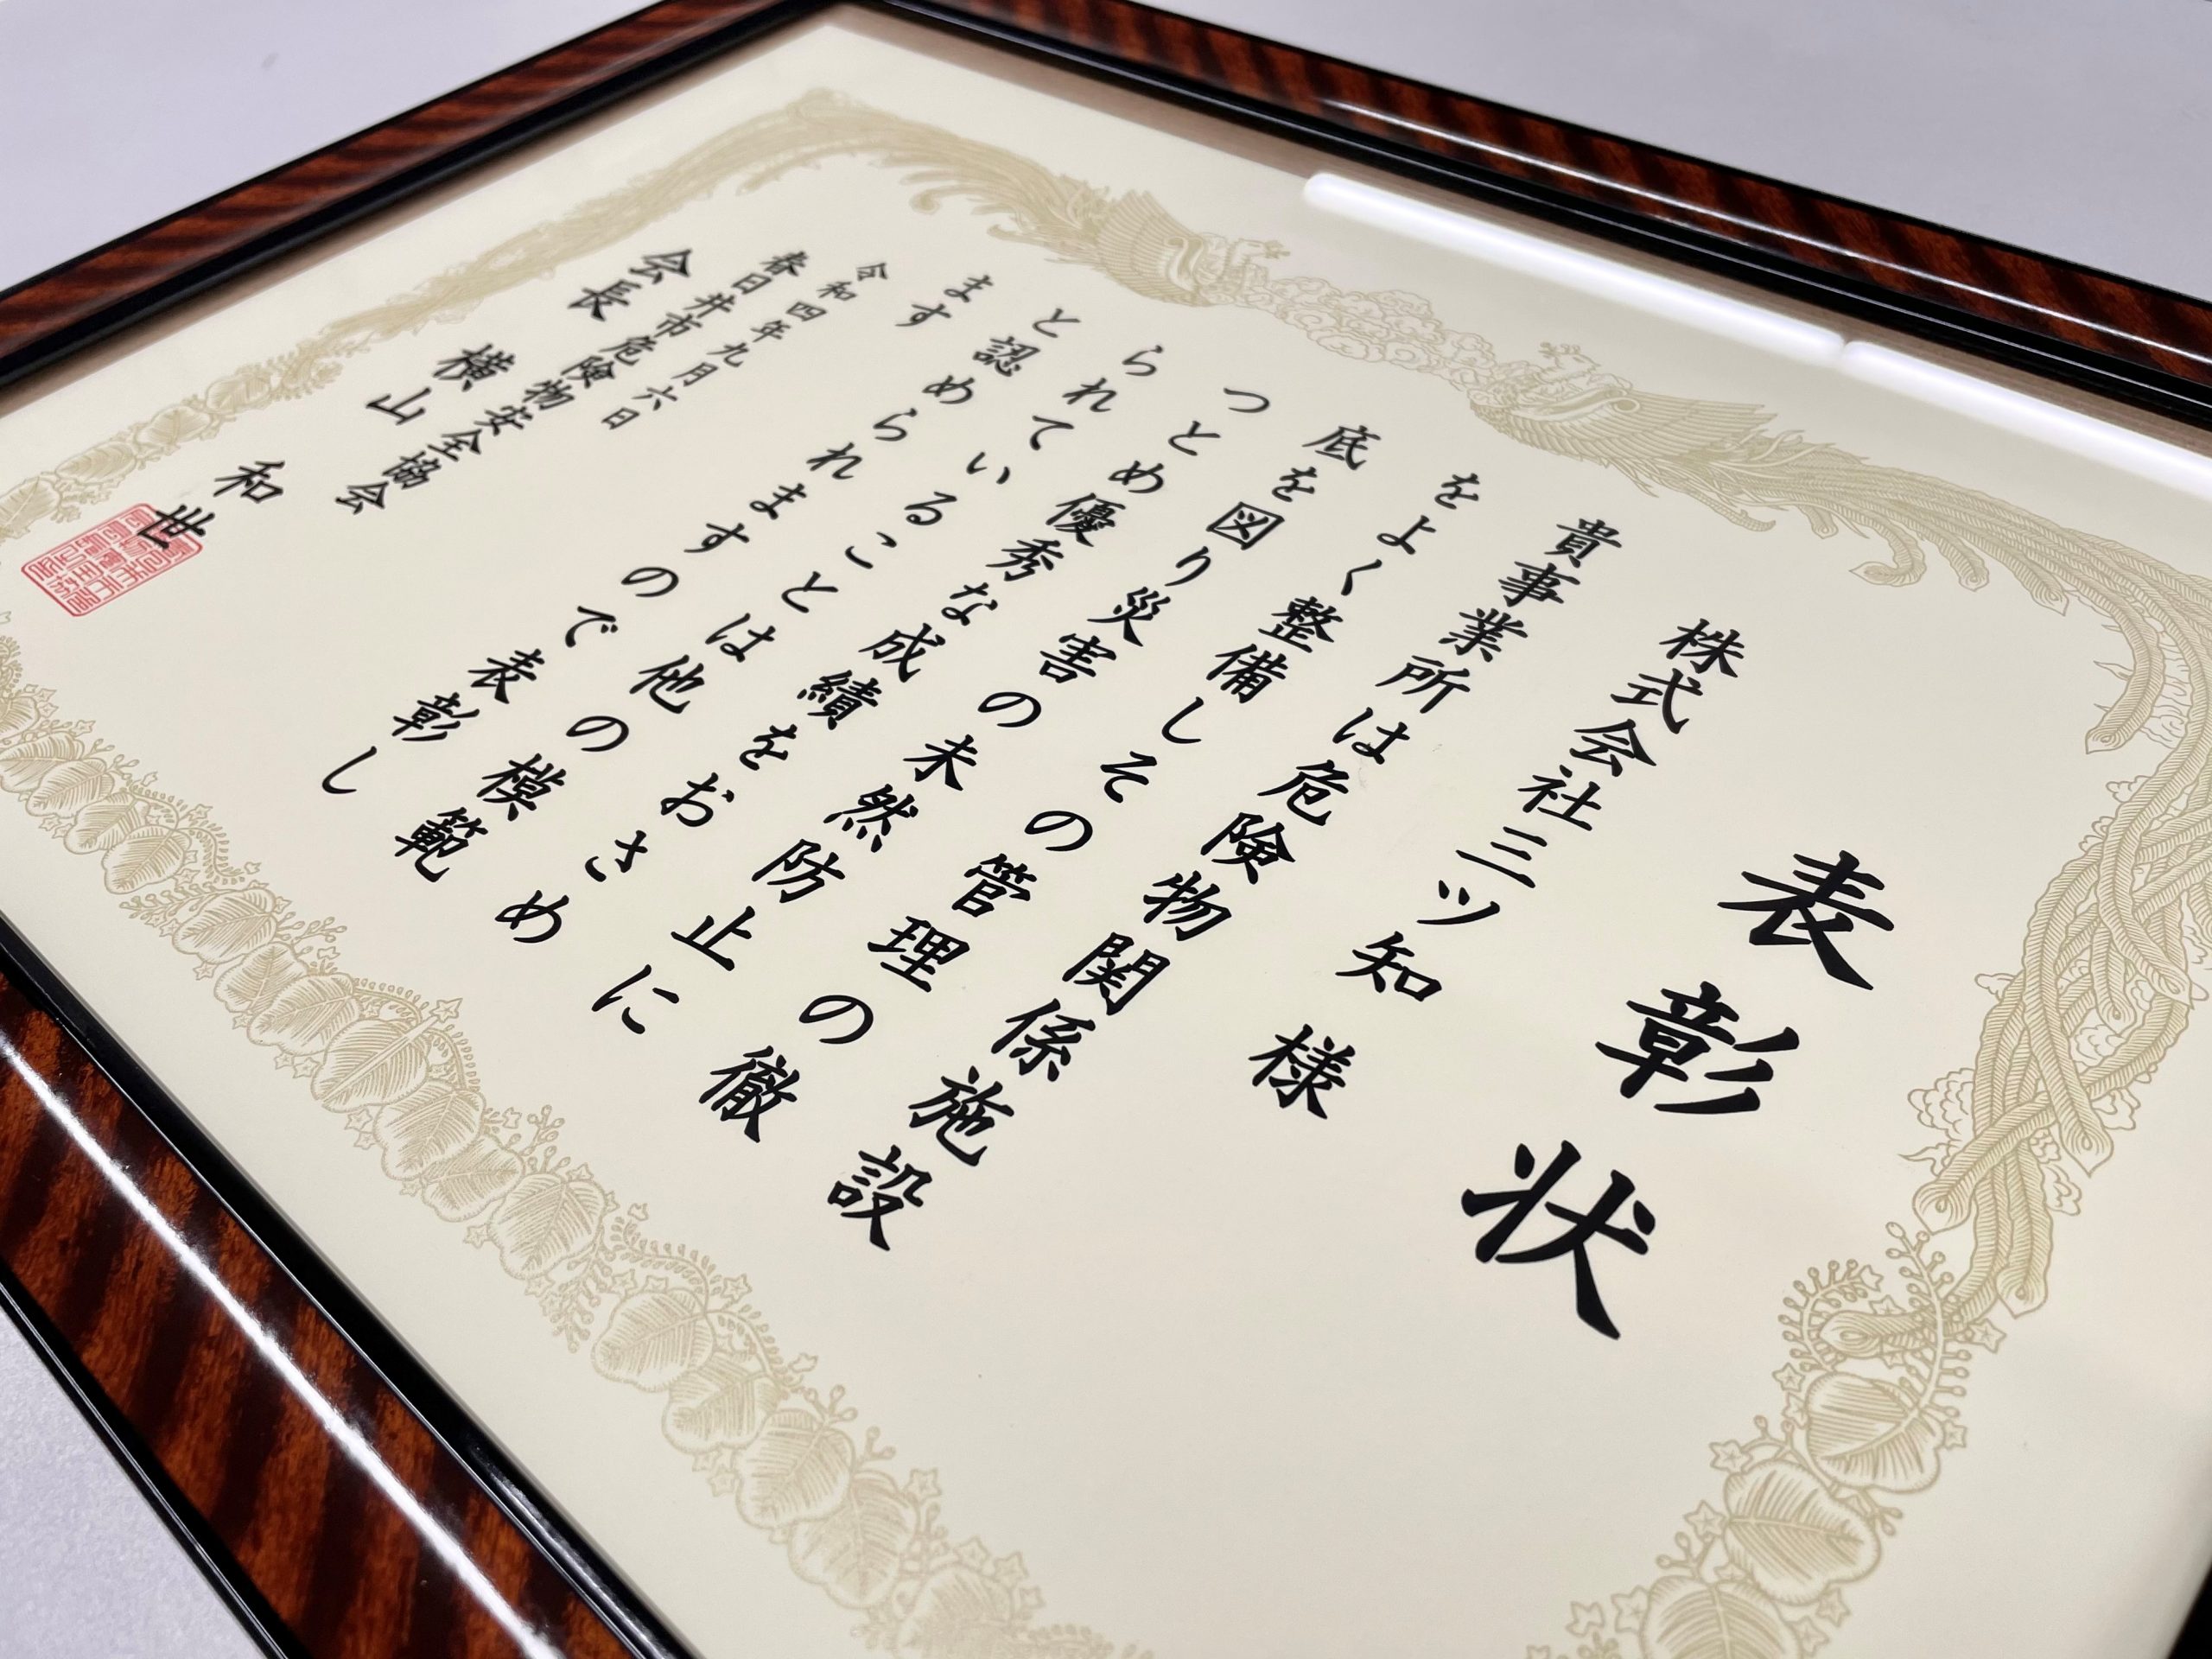 表彰状
株式会社三ツ知 様
貴事業所は危険物関係施設
をよく整備しその管理の徹
底を図り災害の未然防止に
つとめ優秀な成績をおさめ
られていることは他の模範
と認められますので表彰し
ます
令和四年九月六日
春日井市危険物安全協会
会長 横山 和世